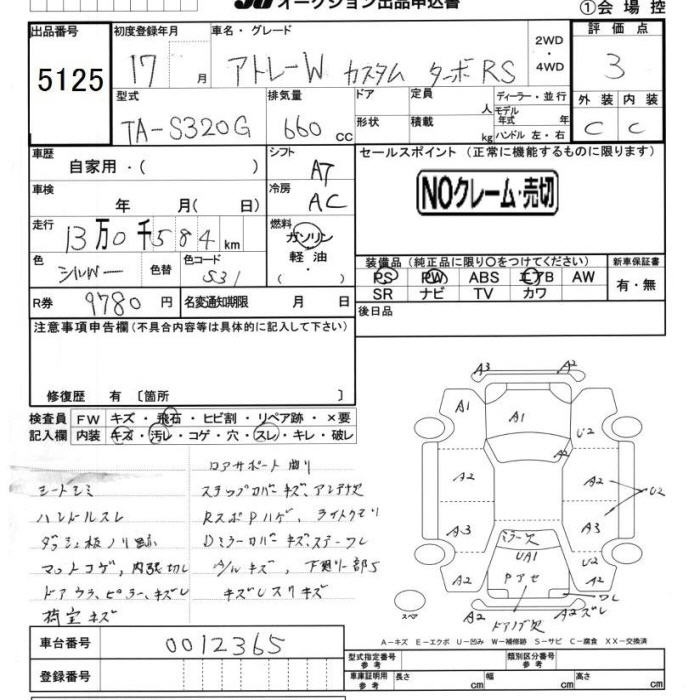 オークション出品申込書
①会場控
出品番号 初度登録年月 車名・グレード 2WD・4WD 評価点
5125 17 月 アトレーW カスタム ターボRS 3
型式 排気量 ドア 定員 人 ディーラー・並行 外装 内装
TA-S320G 660 cc 形状 積載 kg モデル年式 年 ハンドル 左・右 C C
車歴 自家用・( ) シフト AT セールスポイント (正常に機能するものに限ります)
車検 年 月( 日) 冷房 AC NOクレーム・売切
走行 13万0千584km 燃料 ガソリン 軽油 ・( )
装備品(純正品に限り○をつけてください) 新車保証書
色 シルバー 色替 色コード S31
PS PW ABS エアB AW 有・無
SR ナビ TV カワ
R券 9780円 名変通知期限 月 日 後日品
注意事項申告欄(不具合内容等は具体的に記入して下さい)
修復歴 有 [箇所 ]
検査員 FW キズ・飛石・ヒビ割・リペア跡・×要
記入欄 内装 キズ・汚レ・コゲ・穴・スレ・キレ・破レ
ロアサポート曲り
シートシミ ステップカバーキズ、アンテナ欠
ハンドルスレ RスポPハゲ、ライトクモリ
ダッシュ板ノリ跡 Dミラーカバーキズ
マットコゲ、内張切レ キズ、下廻り一部S
ドアウラ、ピラー、キズレ
荷室キズ
A3 A2
A1 A1 U2
A2
A2 A2 U2
A3 A3
ミラー欠
UA1 U2
A2 Pアセ A2
スペア A2 A2ズレ
ドアノブ欠
A-キズ E-エクボ U-凹み W-補修跡 S-サビ C-腐食 XX-交換済
車台番号 0012365
型式指定番号 参考 類別区分番号 参考
登録番号 車庫証明用 参考 長さ cm 幅 cm 高さ cm